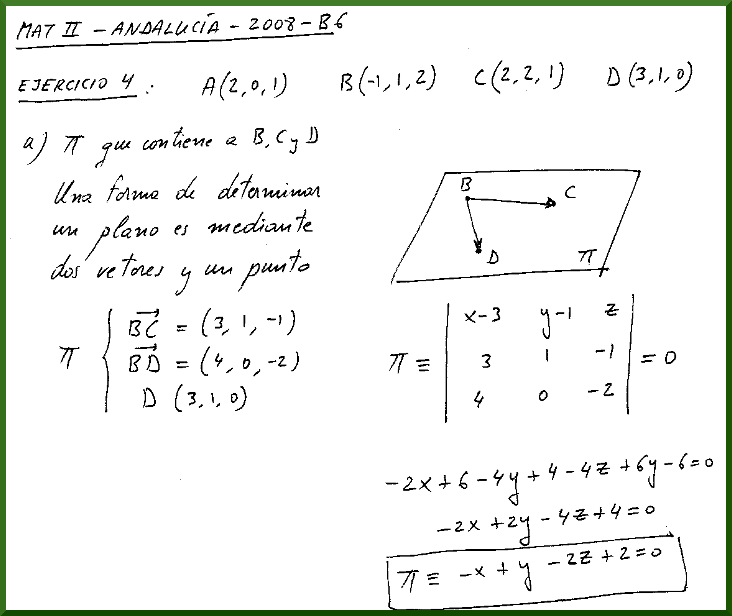 MAT II - ANDALUCÍA - 2008 - B6
EJERCICIO 4 : A(2,0,1) B(-1,1,2) C(2,2,1) D(3,1,0)
a) π que contiene a B, C y D
Una forma de determinar
un plano es mediante
dos vetores y un punto
B C
D π
π { BC→ = (3, 1, -1)
BD→ = (4, 0, -2)
D (3,1,0)
π ≡ | x-3 y-1 z |
| 3 1 -1 | = 0
| 4 0 -2 |
-2x+6-4y+4-4z+6y-6=0
-2x+2y-4z+4=0
π ≡ -x+y-2z+2=0